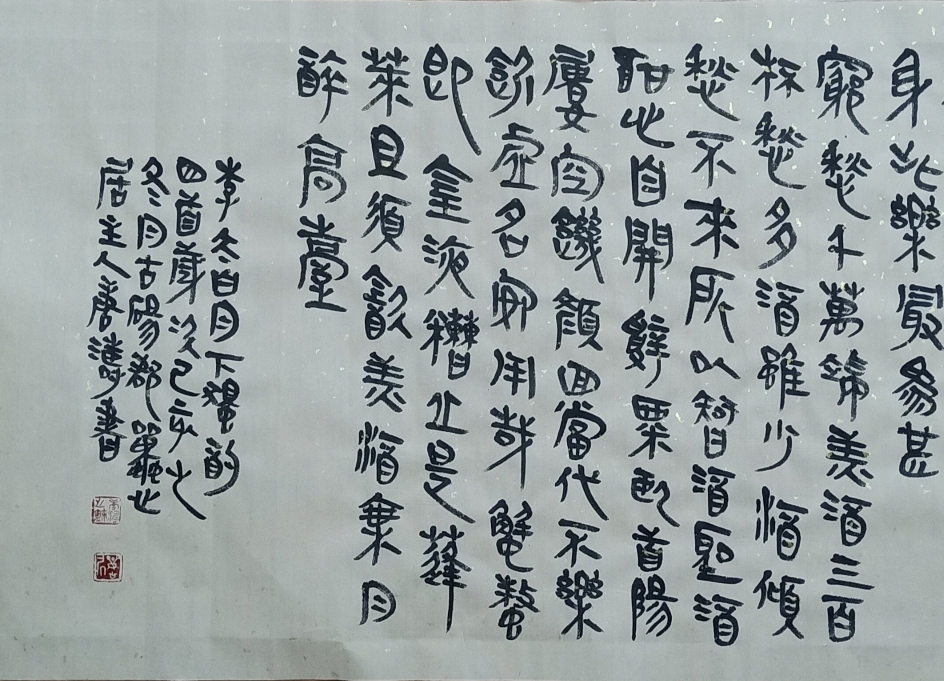 身此樂最為甚
窮愁千萬端美酒三百
杯愁多酒雖少酒傾
愁不來所以智酒聖酒
酣心自開辭粟臥首陽
屢空饑顏回當代不樂
飲虛名安用哉蟹螯
即金液糟丘是蓬
萊且須飲美酒乘月
醉高臺
李太白月下獨酌
四首歲次己亥之
冬月古碭郡
居主人唐濤書